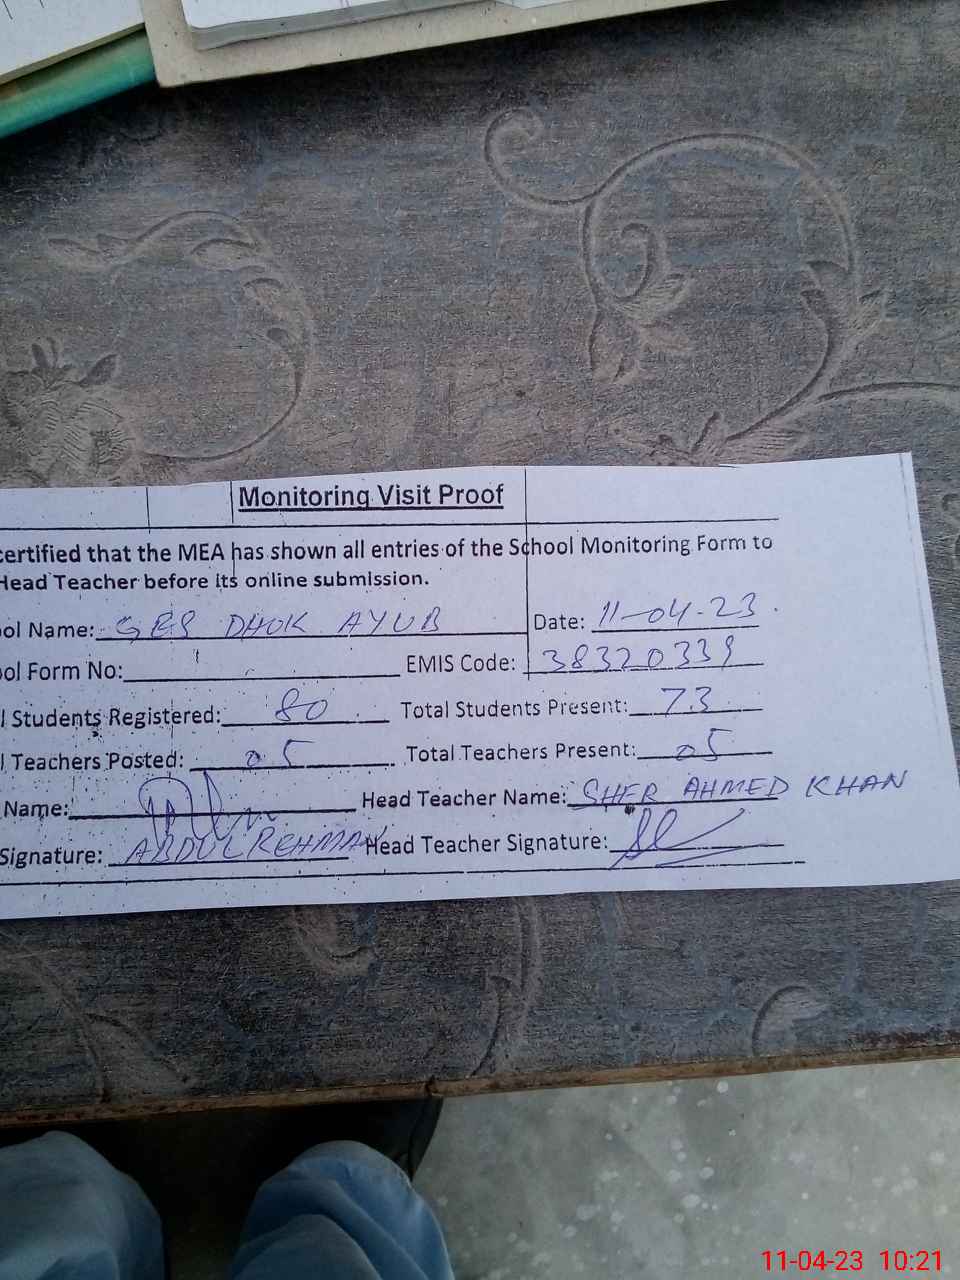 Monitoring Visit Proof
certified that the MEA has shown all entries of the School Monitoring Form to
Head Teacher before its online submission.
ool Name: GES DHOK AYUB Date: 11-04-23.
ool Form No: EMIS Code: 38320339
l Students Registered: 80 Total Students Present: 73
l Teachers Posted: 05 Total Teachers Present: 05
Name: Head Teacher Name: SHER AHMED KHAN
Signature: ABDUL REHMAN Head Teacher Signature:
11-04-23 10:21